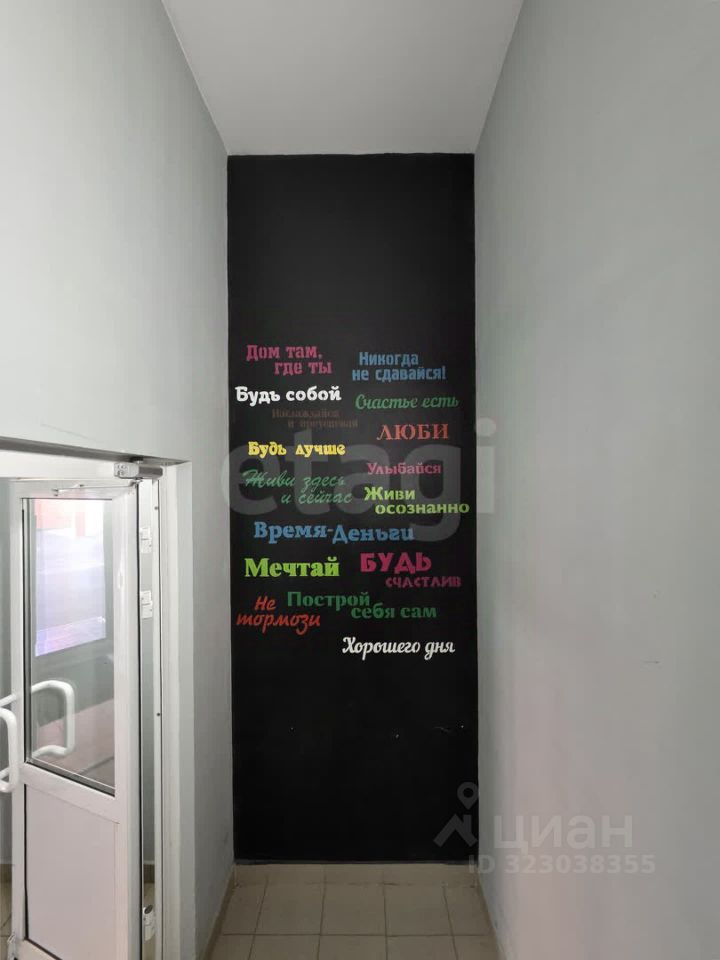 Дом там,
где ты
Никогда
не сдавайся!
Будь собой
Счастье есть
Наслаждайся
и преуспевай
ЛЮБИ
Будь лучше
Улыбайся
Живи здесь
и сейчас
Живи
осознанно
Время-Деньги
Мечтай
БУДЬ
счастлив
Не
тормози
Построй
себя сам
Хорошего дня
etagi
циан
ID 323038355